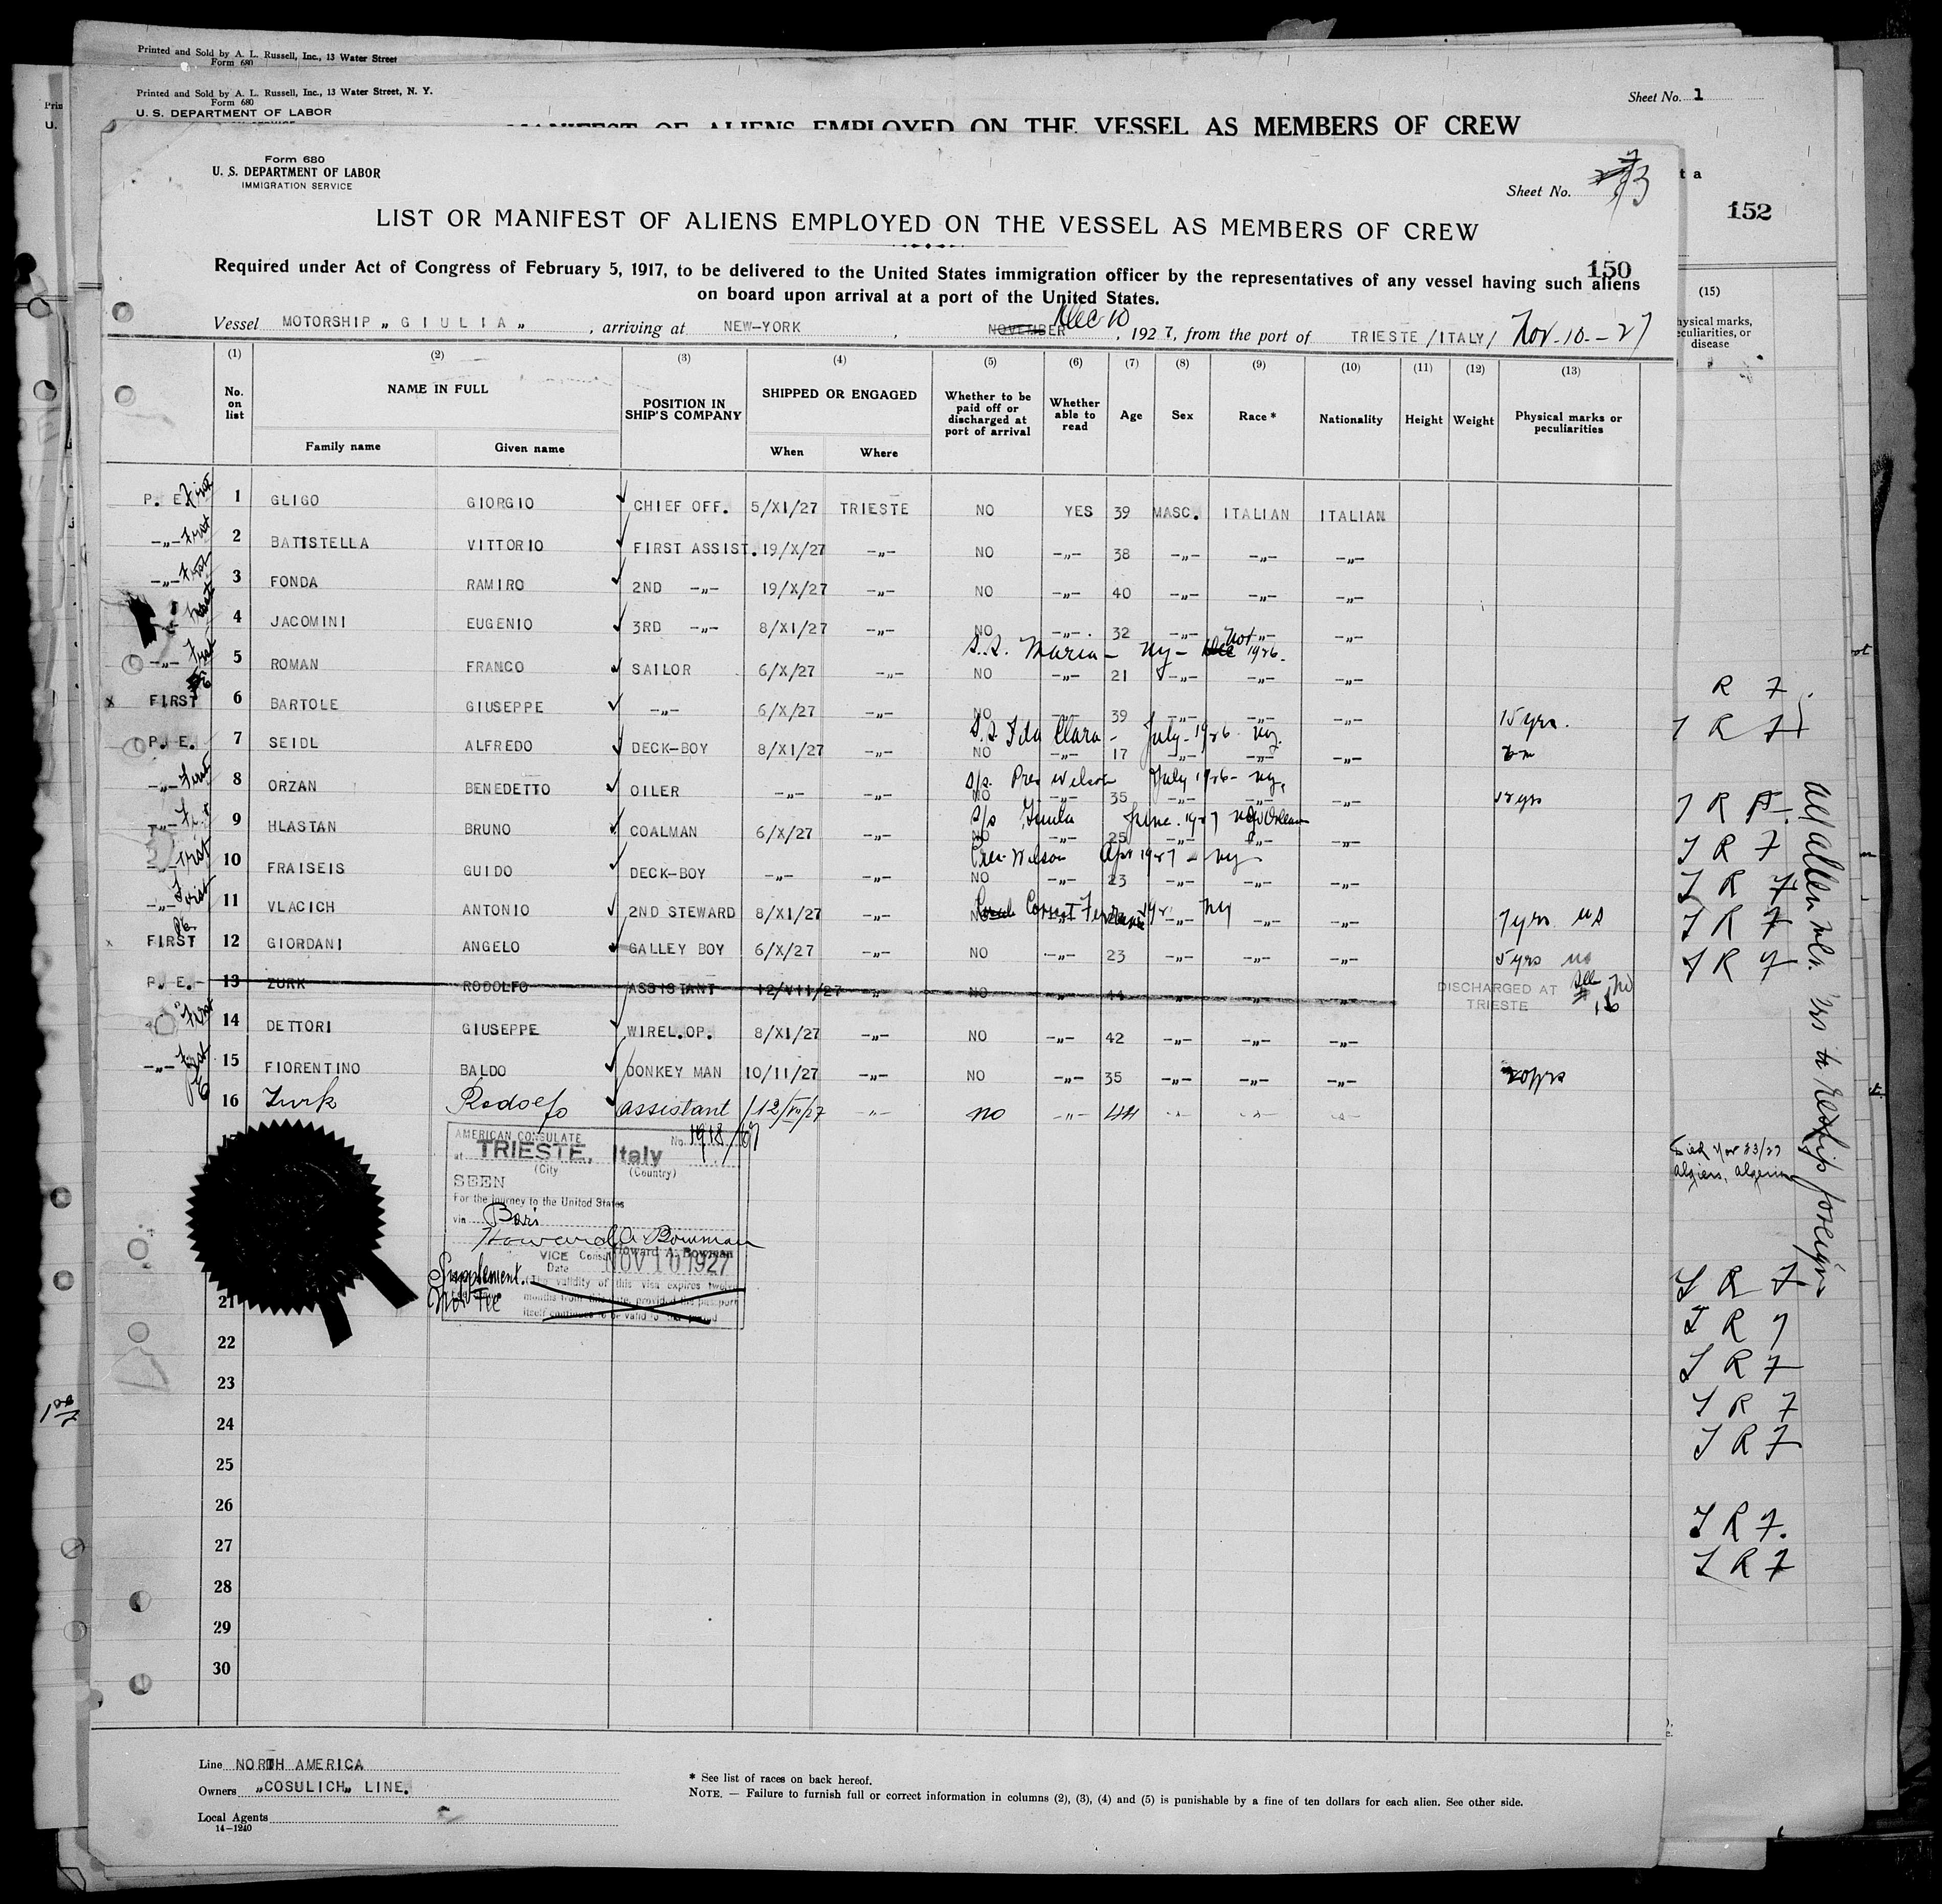 Printed and Sold by A. L. Russell, Inc., 13 Water Street
Form 680
Printed and Sold by A. L. Russell, Inc., 13 Water Street, N. Y.
Form 680
U. S. DEPARTMENT OF LABOR
Sheet No. 1
MANIFEST OF ALIENS EMPLOYED ON THE VESSEL AS MEMBERS OF CREW
152
Form 680
U. S. DEPARTMENT OF LABOR
IMMIGRATION SERVICE
Sheet No. 3
LIST OR MANIFEST OF ALIENS EMPLOYED ON THE VESSEL AS MEMBERS OF CREW
150
Required under Act of Congress of February 5, 1917, to be delivered to the United States immigration officer by the representatives of any vessel having such aliens
on board upon arrival at a port of the United States.
Vessel MOTORSHIP „ G I U L I A „ , arriving at NEW-YORK , NOVEMBER Dec 10 , 1927, from the port of TRIESTE /ITALY/ Nov. 10 - 27
(1) (2) (3) (4) (5) (6) (7) (8) (9) (10) (11) (12) (13)
No. on list
NAME IN FULL
Family name Given name
POSITION IN SHIP'S COMPANY
SHIPPED OR ENGAGED
When Where
Whether to be paid off or discharged at port of arrival
Whether able to read
Age
Sex
Race *
Nationality
Height
Weight
Physical marks or peculiarities
(15)
P. E. First 1 GLIGO GIORGIO CHIEF OFF. 5/XI/27 TRIESTE NO YES 39 MASC. ITALIAN ITALIAN
-„- First 2 BATISTELLA VITTORIO FIRST ASSIST. 19/X/27 -„- NO -„- 38 -„- -„- -„-
-„- First 3 FONDA RAMIRO 2ND -„- 19/X/27 -„- NO -„- 40 -„- -„- -„-
4 JACOMINI EUGENIO 3RD -„- 8/XI/27 -„- NO -„- 32 -„- -„- -„-
S.S. Maria - NY - Nov 1926.
-„- First 5 ROMAN FRANCO SAILOR 6/X/27 -„- NO -„- 21 -„- -„- -„-
x FIRST 6 BARTOLE GIUSEPPE -„- 6/X/27 -„- NO -„- 39 -„- -„- -„- 15 yrs.
S.S. Ida Clara - July - 1926 NY.
P. E. 7 SEIDL ALFREDO DECK-BOY 8/XI/27 -„- NO -„- 17 -„- -„- -„-
S/s. Pres Wilson July 1926 - NY.
-„- First 8 ORZAN BENEDETTO OILER -„- -„- NO -„- 35 -„- -„- -„-
S/s Giulia June 1927 New Orleans
9 HLASTAN BRUNO COALMAN 6/X/27 -„- NO -„- 25 -„- -„-
Pres. Wilson Apr 1927 - NY
First 10 FRAISEIS GUIDO DECK-BOY -„- -„- NO -„- 23 -„- -„- -„-
-„- First 11 VLACICH ANTONIO 2ND STEWARD 8/XI/27 -„- NO -„- -„- -„- -„- 7 yrs us
x FIRST 12 GIORDANI ANGELO GALLEY BOY 6/X/27 -„- NO -„- 23 -„- -„- -„- 5 yrs us
P. E. - 13 ZURK RODOLFO ASSISTANT 12/VII/27 -„- NO -„- 44 -„- -„- -„- DISCHARGED AT TRIESTE See No 16
First 14 DETTORI GIUSEPPE WIREL.OP. 8/XI/27 -„- NO -„- 42 -„- -„- -„-
-„- First 15 FIORENTINO BALDO DONKEY MAN 10/11/27 -„- NO -„- 35 -„- -„- -„- 20 yrs
PE 16 Zurk Rodolfo assistant 12/VII/27 -„- no -„- 44 -„- -„- -„-
AMERICAN CONSULATE No. 1918/27
at TRIESTE, Italy
(City (Country)
SEEN
For the journey to the United States
via Bari
Howard A. Bowman
Howard A. Bowman
VICE Consul
Date NOV 10 1927
Supplement.
No Fee
(The validity of this visa expires twelve
months from this date, provided the passport
itself continues to be valid for that period
21
22
23
24
25
26
27
28
29
30
Died Nov 23/27
Algiers, Algeria
Line NORTH AMERICA
Owners „COSULICH„ LINE.
Local Agents
14-1240
* See list of races on back hereof.
NOTE. — Failure to furnish full or correct information in columns (2), (3), (4) and (5) is punishable by a fine of ten dollars for each alien. See other side.